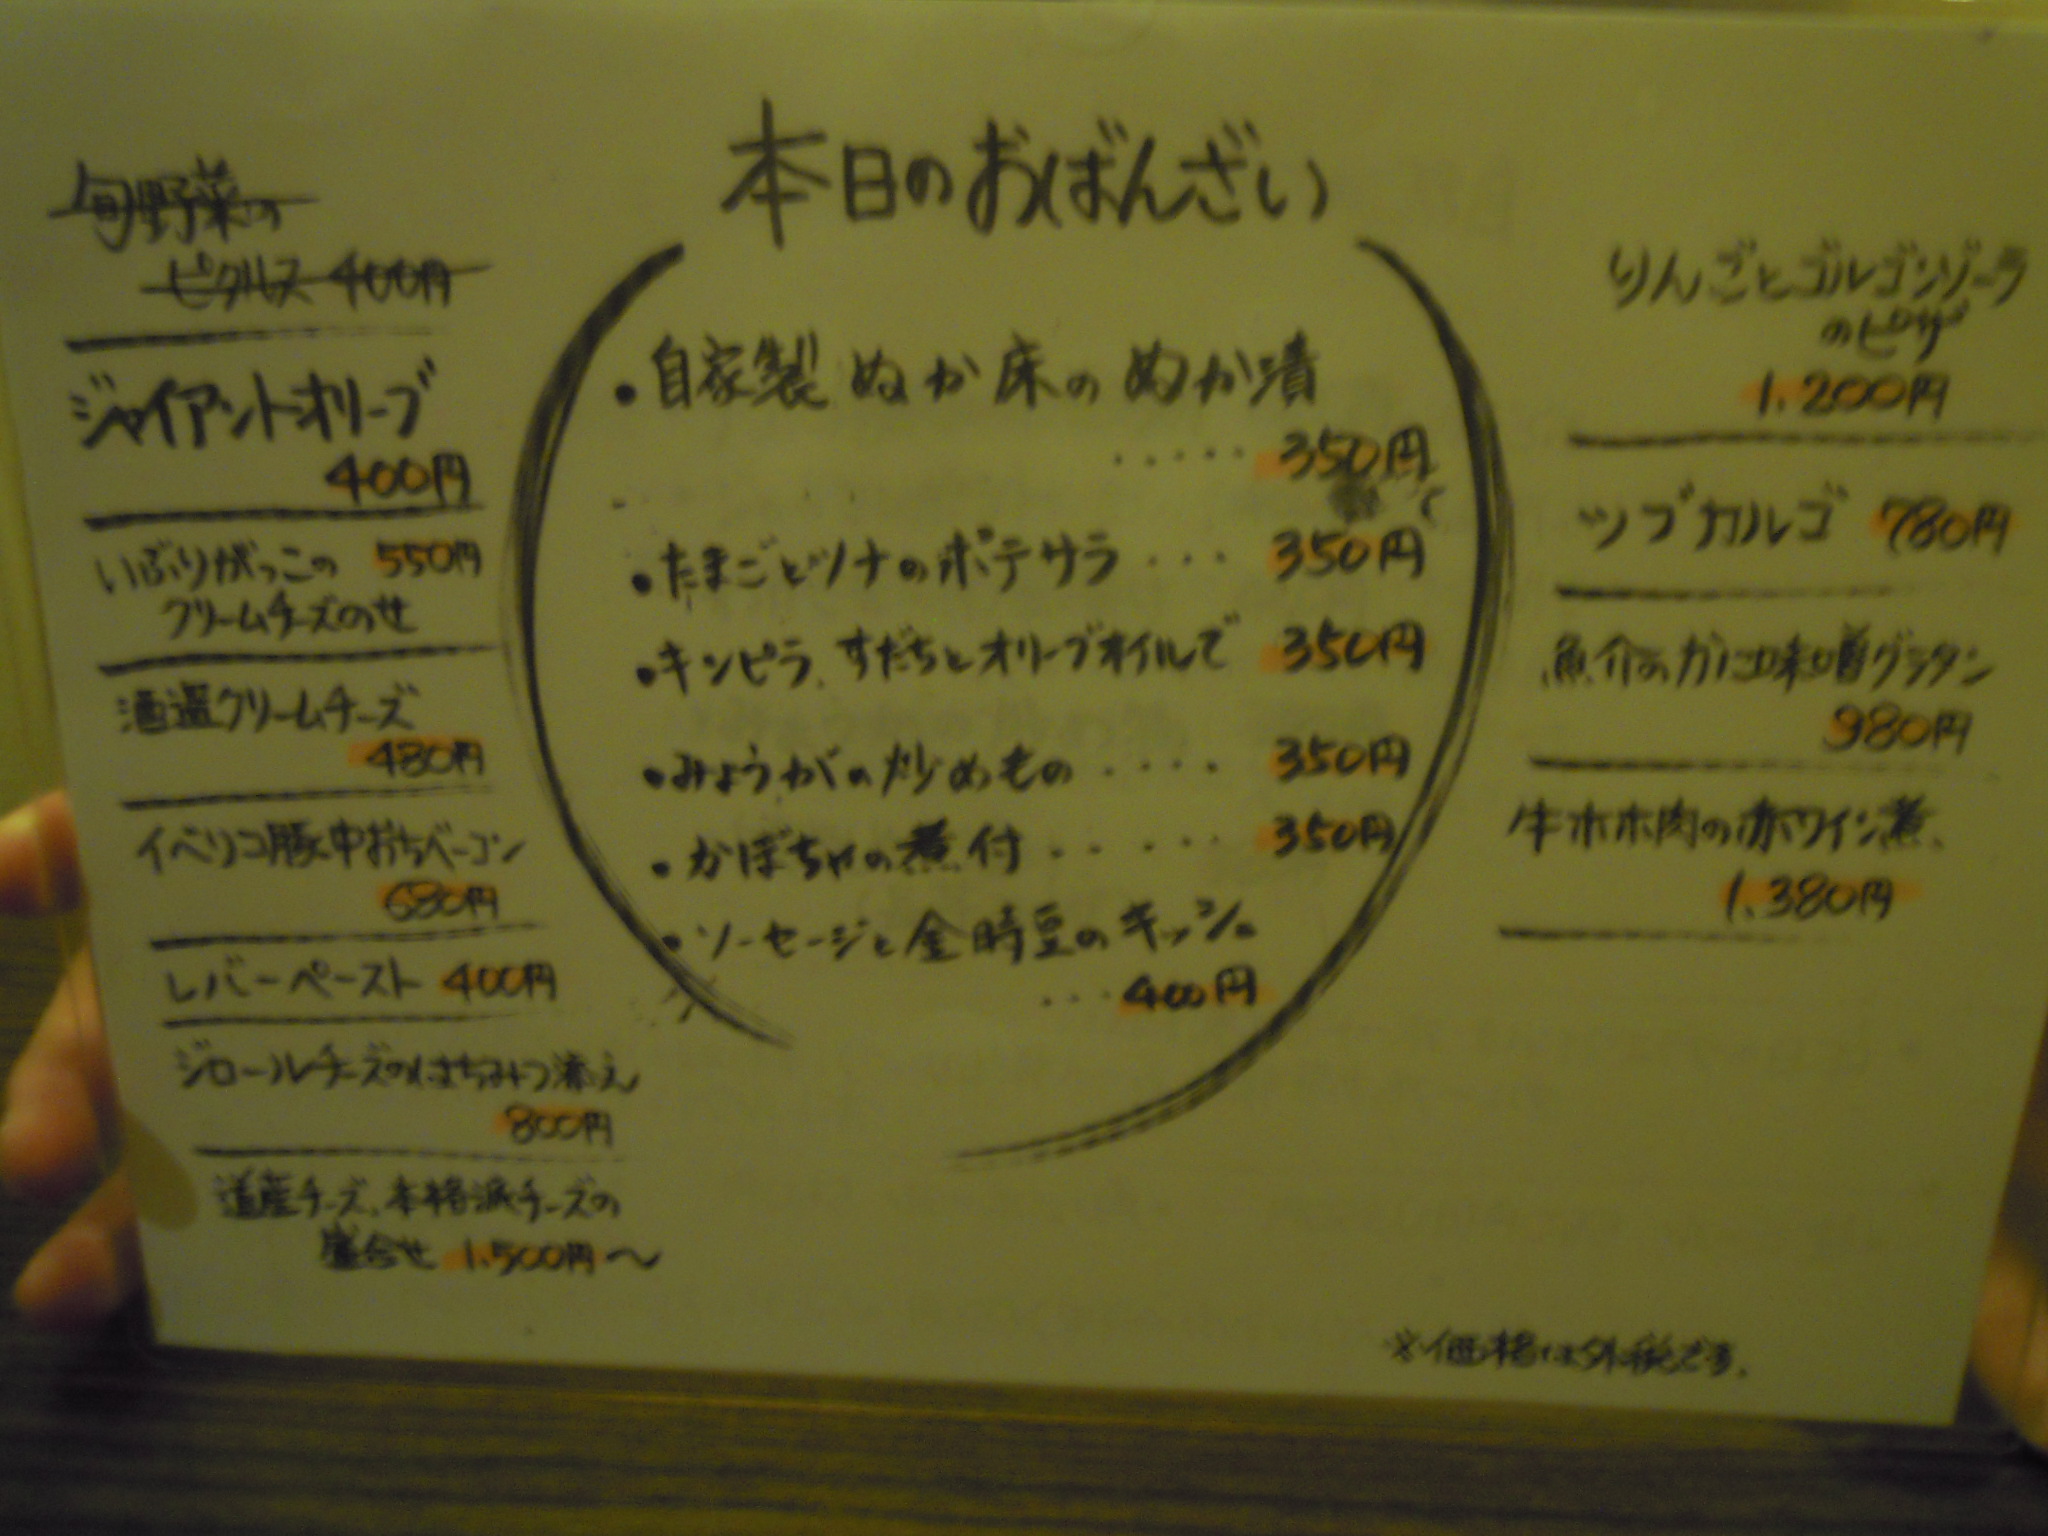 本日のおばんざい
旬野菜の
ピクルス 400円
ジャイアントオリーブ
400円
いぶりがっこの 550円
クリームチーズのせ
酒盗クリームチーズ
480円
イベリコ豚中おちベーコン
680円
レバーペースト 400円
ジロールチーズのはちみつ添え
800円
道産チーズ、本格派チーズの
盛合せ 1,500円〜
・自家製 ぬか床の ぬか漬
・・・・・ 350円
・たまごとツナのポテサラ ・・・ 350円
・キンピラ、すだちとオリーブオイルで 350円
・みょうがの炒めもの ・・・・ 350円
・かぼちゃの煮付 ・・・・・ 350円
・ソーセージと金時豆のキッシュ
・・・400円
りんごとゴルゴンゾーラ
のピザ
1,200円
ツブカルゴ 780円
魚介のかに味噌グラタン
980円
牛ホホ肉の赤ワイン煮、
1,380円
※価格は外税です。